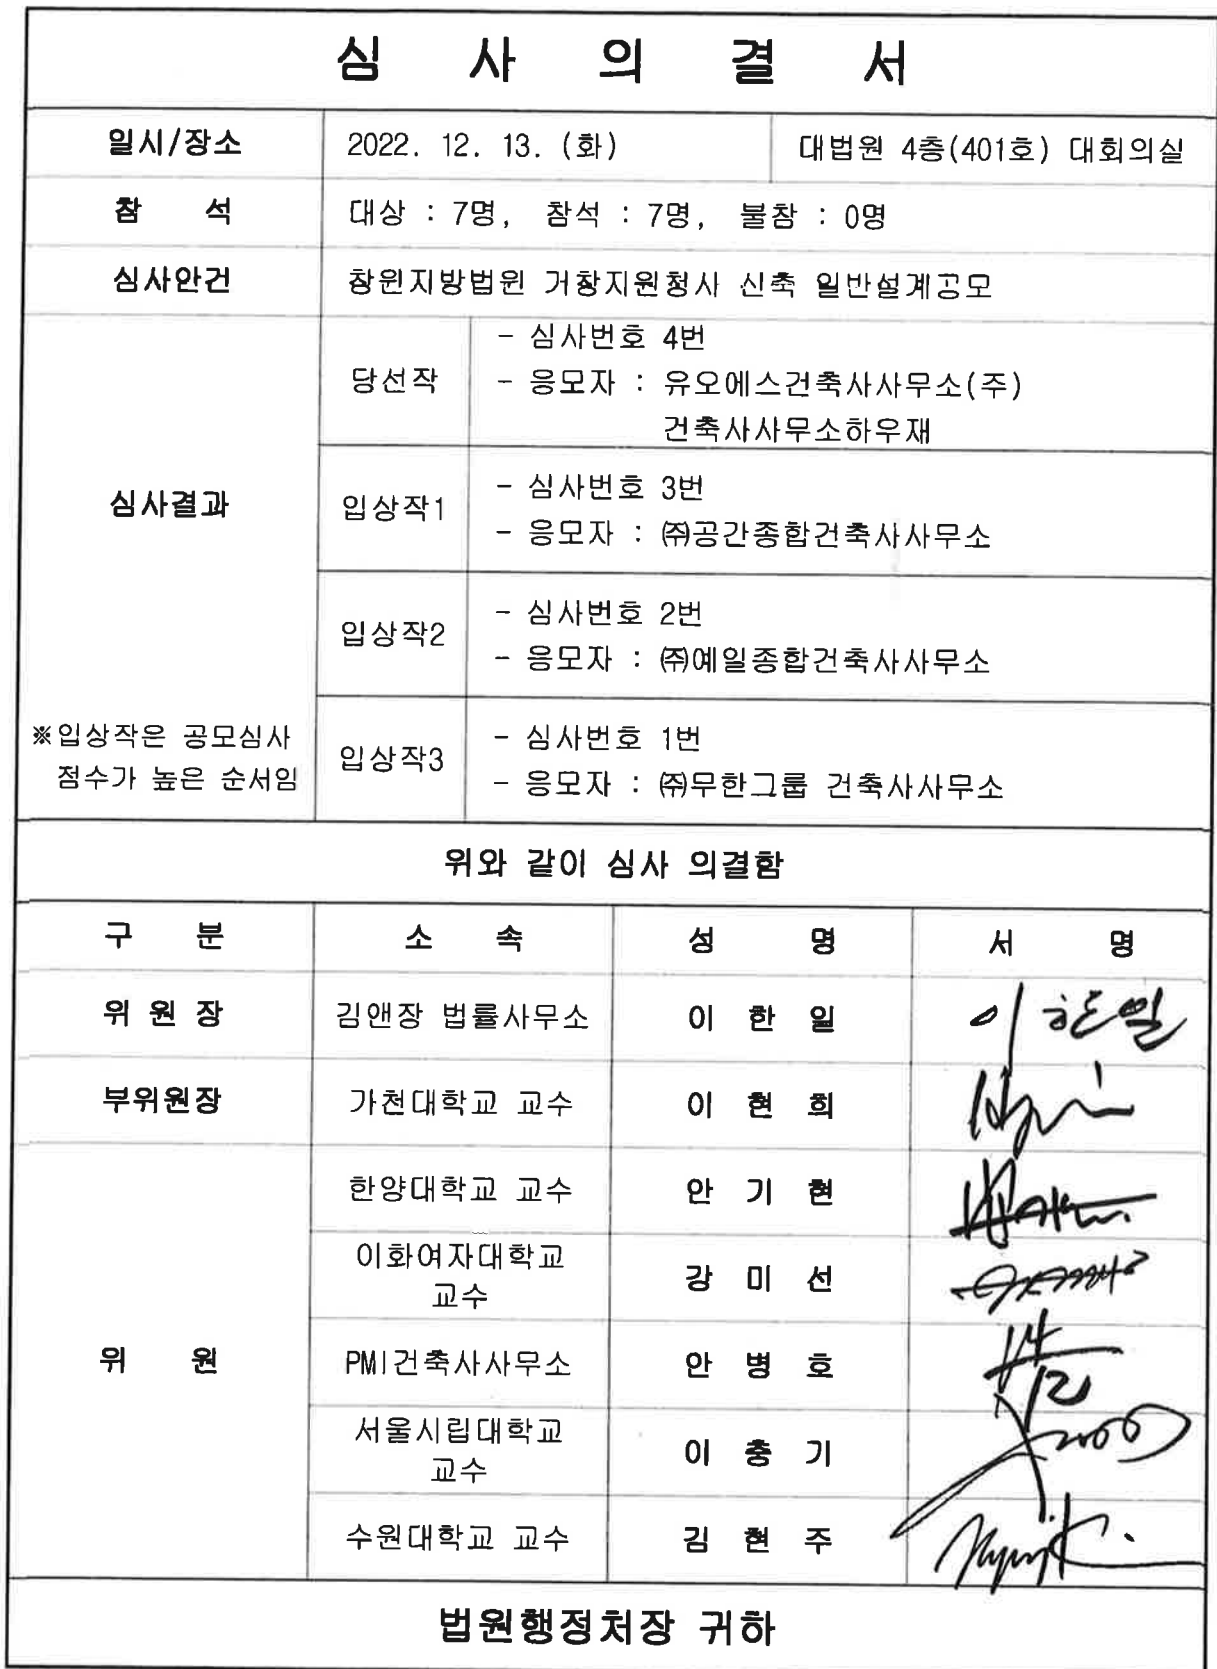 심 사 의 결 서
일시/장소 2022. 12. 13. (화) 대법원 4층(401호) 대회의실
참 석 대상 : 7명, 참석 : 7명, 불참 : 0명
심사안건 창원지방법원 거창지원청사 신축 일반설계공모
심사결과
※입상작은 공모심사
점수가 높은 순서임
당선작
- 심사번호 4번
- 응모자 : 유오에스건축사사무소(주)
건축사사무소하우재
입상작1
- 심사번호 3번
- 응모자 : ㈜공간종합건축사사무소
입상작2
- 심사번호 2번
- 응모자 : ㈜예일종합건축사사무소
입상작3
- 심사번호 1번
- 응모자 : ㈜무한그룹 건축사사무소
위와 같이 심사 의결함
구 분 소 속 성 명 서 명
위 원 장 김앤장 법률사무소 이 한 일 이한일
부위원장 가천대학교 교수 이 현 희
위 원
한양대학교 교수 안 기 현
이화여자대학교
교수
강 미 선
PMI건축사사무소 안 병 호
서울시립대학교
교수
이 충 기
수원대학교 교수 김 현 주
법원행정처장 귀하